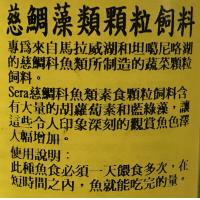 慈鯛藻類顆粒飼料
專爲來自馬拉威湖和坦噶尼喀湖
的慈鯛科魚類所制造的蔬菜顆粒
飼料。
Sera慈鯛科魚類素食顆粒飼料含
有大量的胡蘿蔔素和藍綠藻，讓
這些令人印象深刻的觀賞魚色澤
大幅增加。
使用說明：
此種魚食必須一天餵食多次，在
短時間之內，魚就能吃完的量。